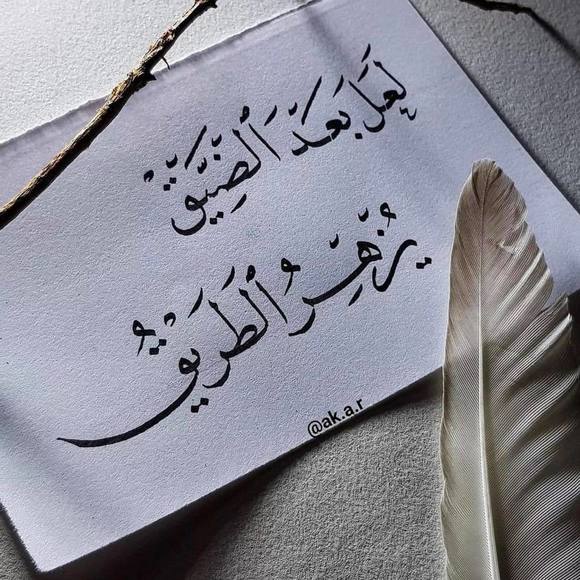 لعل بعد الضيق
يزهر الطريق
@ak.a.r